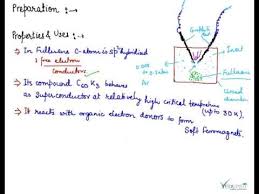 Preparation :-
Properties & Uses :-
→ In Fullerene C-atom is sp² hybridized
1 free electron
conductors
→ Its compound C60 K3 behaves
as Superconductor at relatively high critical temperature
(upto 30 K).
→ It reacts with organic electron donors to form
Soft Ferromagnets.
Graphite
Inert
Fullerene
Ar